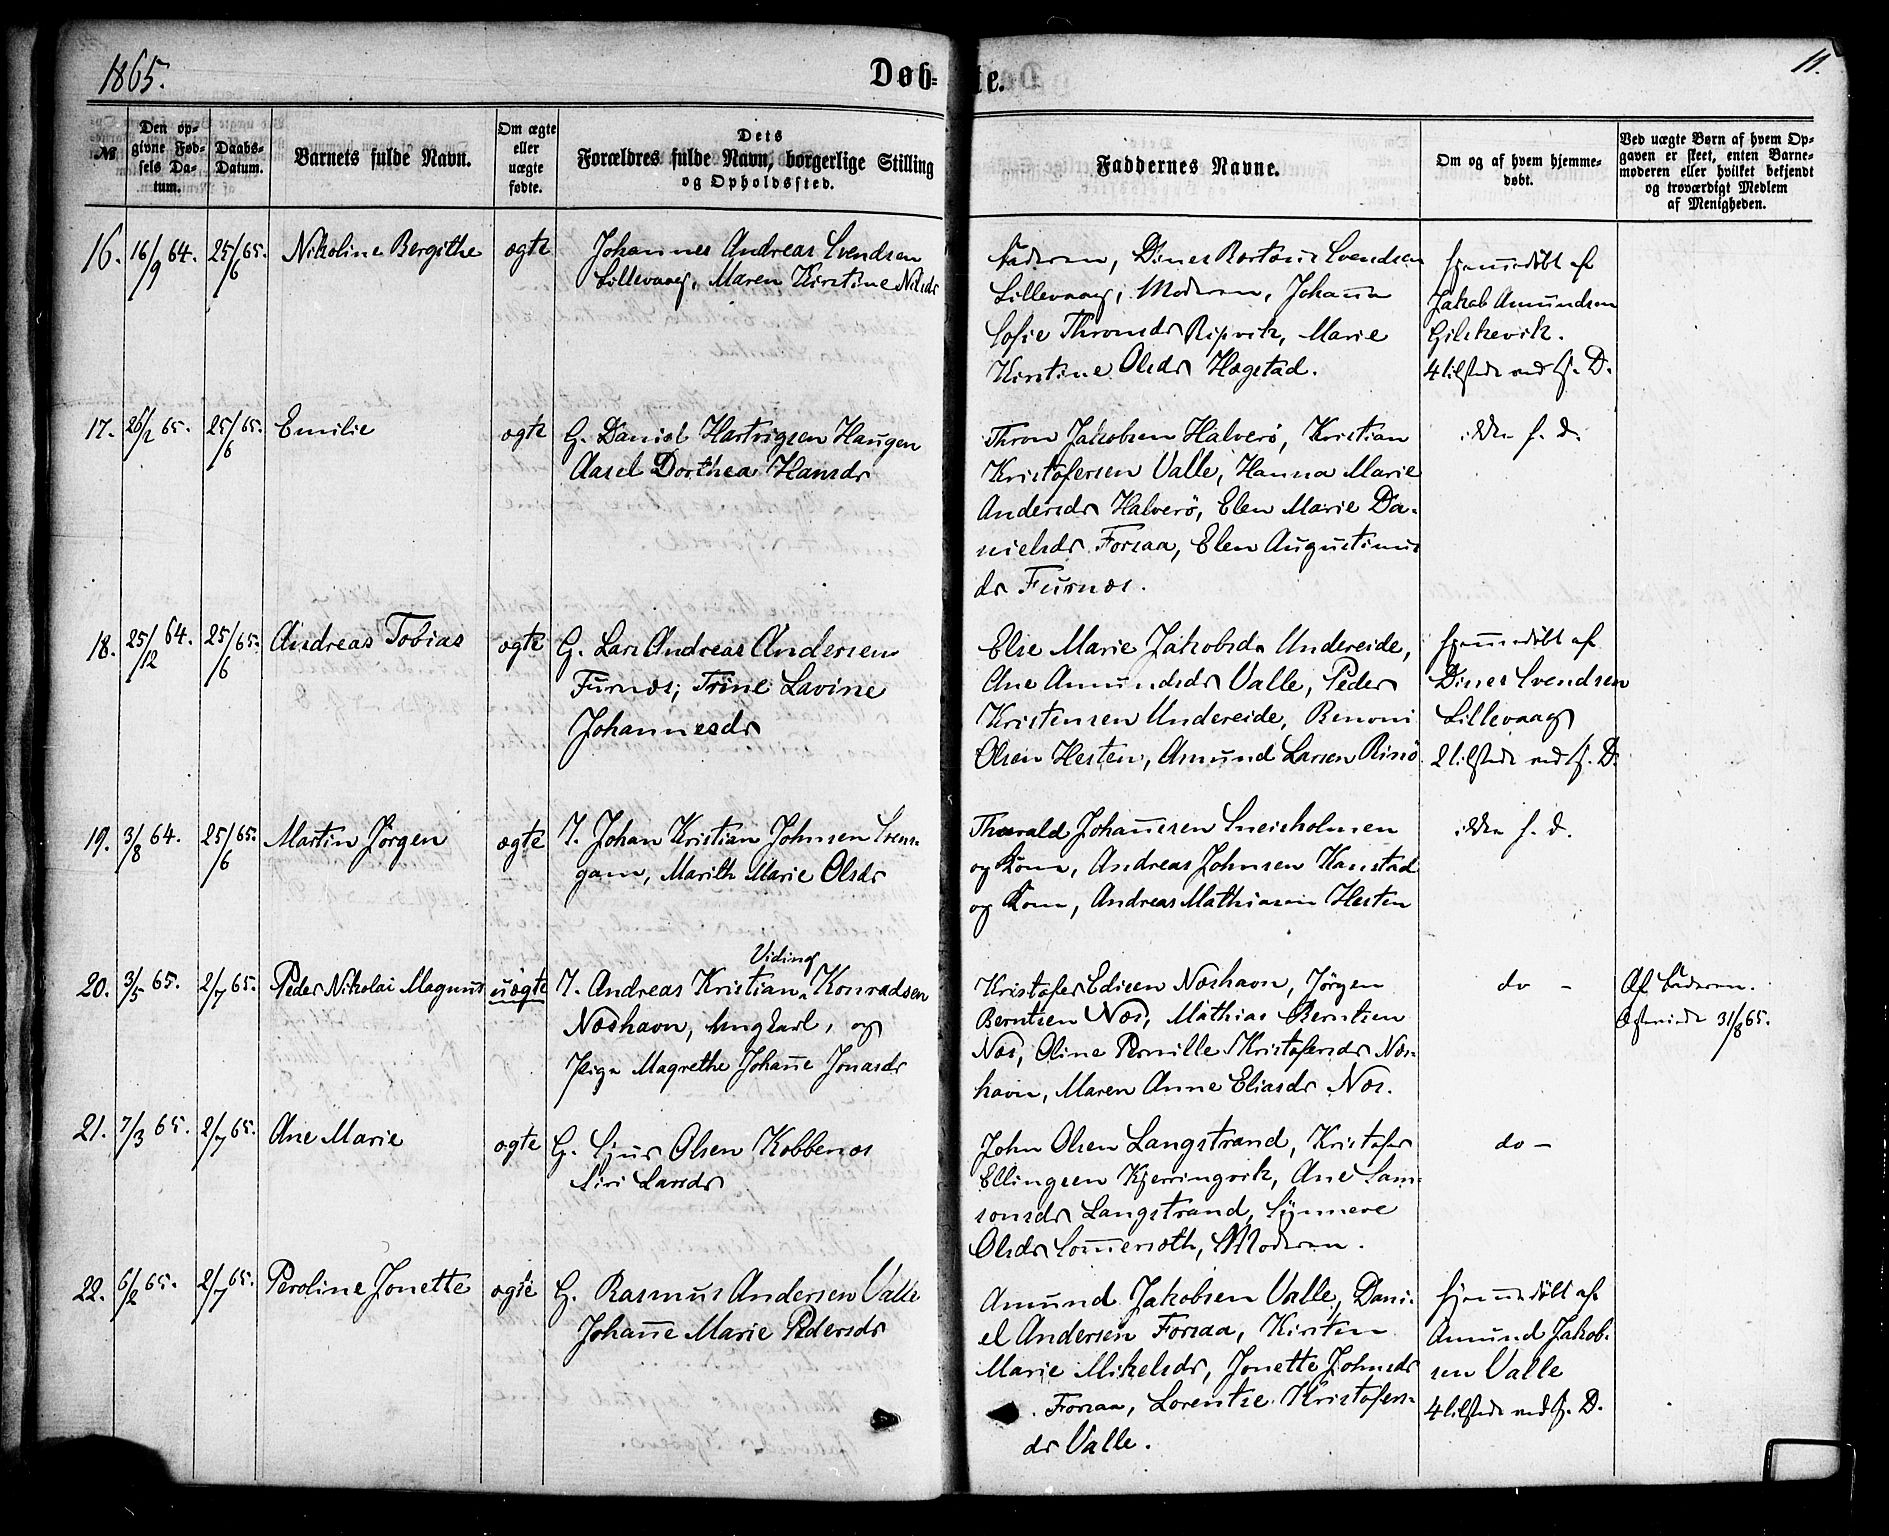 1865.
Døb-
te.
11.
№
Den op-
givne Fød-
sels Da-
tum.
Daabs-
Datum.
Barnets fulde Navn.
Om ægte
eller
uægte
fødte.
Dets
Forældres fulde Navn, borgerlige Stilling
og Opholdssted.
Faddernes Navne.
Om og af hvem hjemme-
døbt.
Ved uægte Børn af hvem Op-
gaven er skeet, enten Barne-
moderen eller hvilket bekjendt
og troværdigt Medlem
af Menigheden.
16. 16/9 64. 25/6 65. Nikoline Bergithe ægte
Johannes Andreas Svendsen
Lillevaag, Maren Kirstine Nilsdr
Faderen, Dines Svendsen
Lillevaag, Moderen, Johanna
Sofie Thronsdr Ripvik, Marie
Kirstine Olsdr Hægstad.
hjemmedøbt af
Jakob Amundsen
Gilskevik.
4 tilstede ved hj. D.
17. 26/2 65. 25/6 65. Emilie ægte
G. Daniel Hartvigsen Haugen
Aasel Dorthea Hansdr
Thron Jakobsen Halverö, Kristian
Kristofersen Valle, Hanna Marie
Andersdr Halverö, Elen Marie Da-
nielsdr Forsaa, Elen Augustinus
dr Furnæs.
ikke h. d.
18. 25/12 64. 25/6 65. Andreas Tobias ægte
G. Lars Andreas Andersen
Furnæs, Trine Lavine
Johannesdr
Else Marie Jakobsdr Undereide,
Ane Amundsdr Valle, Peder
Kristensen Undereide, Benoni
Olsen Hesten, Amund Larsen Risö
hjemmedøbt af
Dines Svendsen
Lillevaag
2 tilstede ved hj. D.
19. 3/8 64. 25/6 65. Martin Jörgen ægte
I. Johan Kristian Johnsen Svens-
gam, Marith Marie Olsdr
Thorvald Johannesen Sneisholmen
og Kone, Andreas Johnsen Kanstad
og Kone, Andreas Mathiasen Hesten
ikke h. d.
20. 3/5 65. 2/7 65. Peder Nikolai Magnus uægte
Viding
I. Andreas Kristian Konradsen
Næshavn, Ungkarl, og
Pige Magrethe Johanne Jonasdr
Kristofer Edisen Næshavn, Jörgen
Berntsen Næs, Mathias Berntsen
Næs, Oline Pernille Kristofersdr Næs-
havn, Maren Anne Eliasdr Næs.
do -
Af Faderen.
31/8 65.
21. 7/3 65. 2/7 65. Ane Marie ægte
G. Sjur Olsen Kobbenæs
Siri Larsdr
John Olsen Langstrand, Kristofer
Ellingsen Kjerringvik, Ane Sam-
sonsdr Langstrand, Synnere
Olsdr Sommersæth, Moderen.
do -
22. 6/2 65. 2/7 65. Peroline Jonette ægte
G. Rasmus Andersen Valle
Johanne Marie Pedersdr
Amund Jakobsen Valle, Dani-
el Andersen Forsaa, Kirsten
Marie Mikelsdr, Jonette Johnsdr
Forsaa, Lorentse Kristofers-
dr Valle.
hjemmedøbt af
Amund Jakob-
sen Valle
4 tilstede ved hj. D.